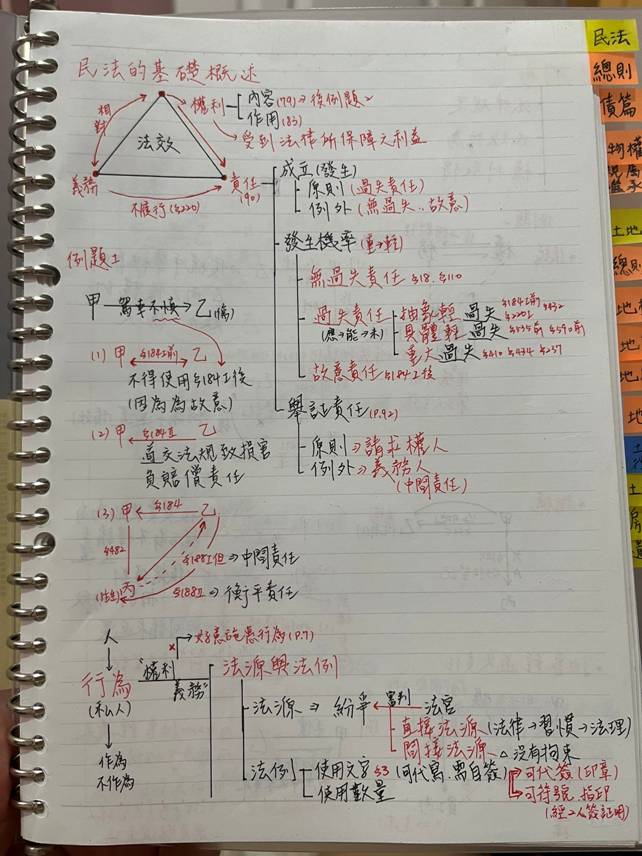 民法的基礎概述
相對
權利
內容(79)→後例題2
作用(83)
受到法律所保障之利益
法效
義務
責任
(90)
不履行(§220)
成立(發生)
原則(過失責任)
例外(無過失、故意)
發生機率(重→輕)
無過失責任 §18.§110
過失責任
(應→能→未)
抽象輕過失 §184I前 §220I §432
具體輕過失 §535前 §590前
重大過失 §410 §434 §237
故意責任 §184I後
舉証責任(P.92)
原則→請求權人
例外→義務人
(中間責任)
例題1
甲 駕車不慎 乙(傷)
(1) 甲 §184I前 乙
不得使用§184I後
(因為為故意)
(2) 甲 §184II 乙
道交法規致損害
負賠償責任
(3) 甲 §184 乙
§482
§188I但⇒中間責任
丙
§188II⇒衡平責任
人
好意施惠行為(P.7)
行為
(私人)
"權利
義務"
作為
不作為
法源與法例
法源⇒紛爭 審判 法官
直接法源(法律→習慣→法理)
間接法源 △沒有拘束
法例
使用文字 §3 (可代寫.需自簽)
可代簽(印章)
可符號.指印
(經2人簽証明)
使用數量
民法
總則
債篇
物權
總則
土地
土地